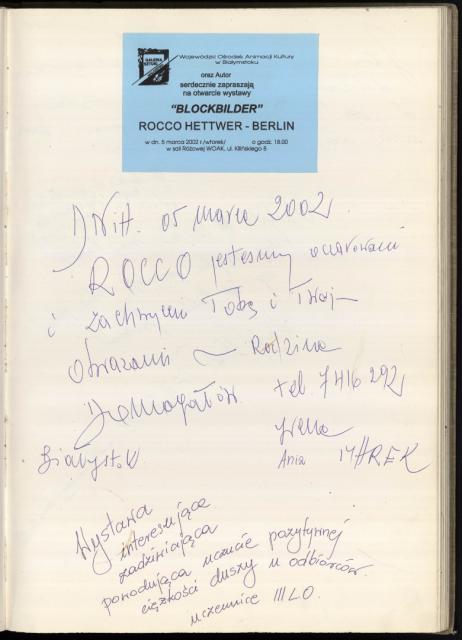 GALERIA
Wojewódzki Ośrodek Animacji Kultury
w Białymstoku
oraz Autor
serdecznie zapraszają
na otwarcie wystawy
"BLOCKBILDER"
ROCCO HETTWER - BERLIN
w dn. 5 marca 2002 r /wtorek/ o godz. 18.00
w sali Różowej WOAK, ul. Kilińskiego 8
05 marca 2002
ROCCO jesteśmy oczarowani
i zachwyceni Tobą i Twoj-
obrazami ~ Rodzina
tel. 7416 292
Białystok
Irena
Ania MAREK
Wystawa
interesująca
zadziwiająca
powodująca uczucie pozytywnej
ciężkości duszy u odbiorców.
uczennice III LO.